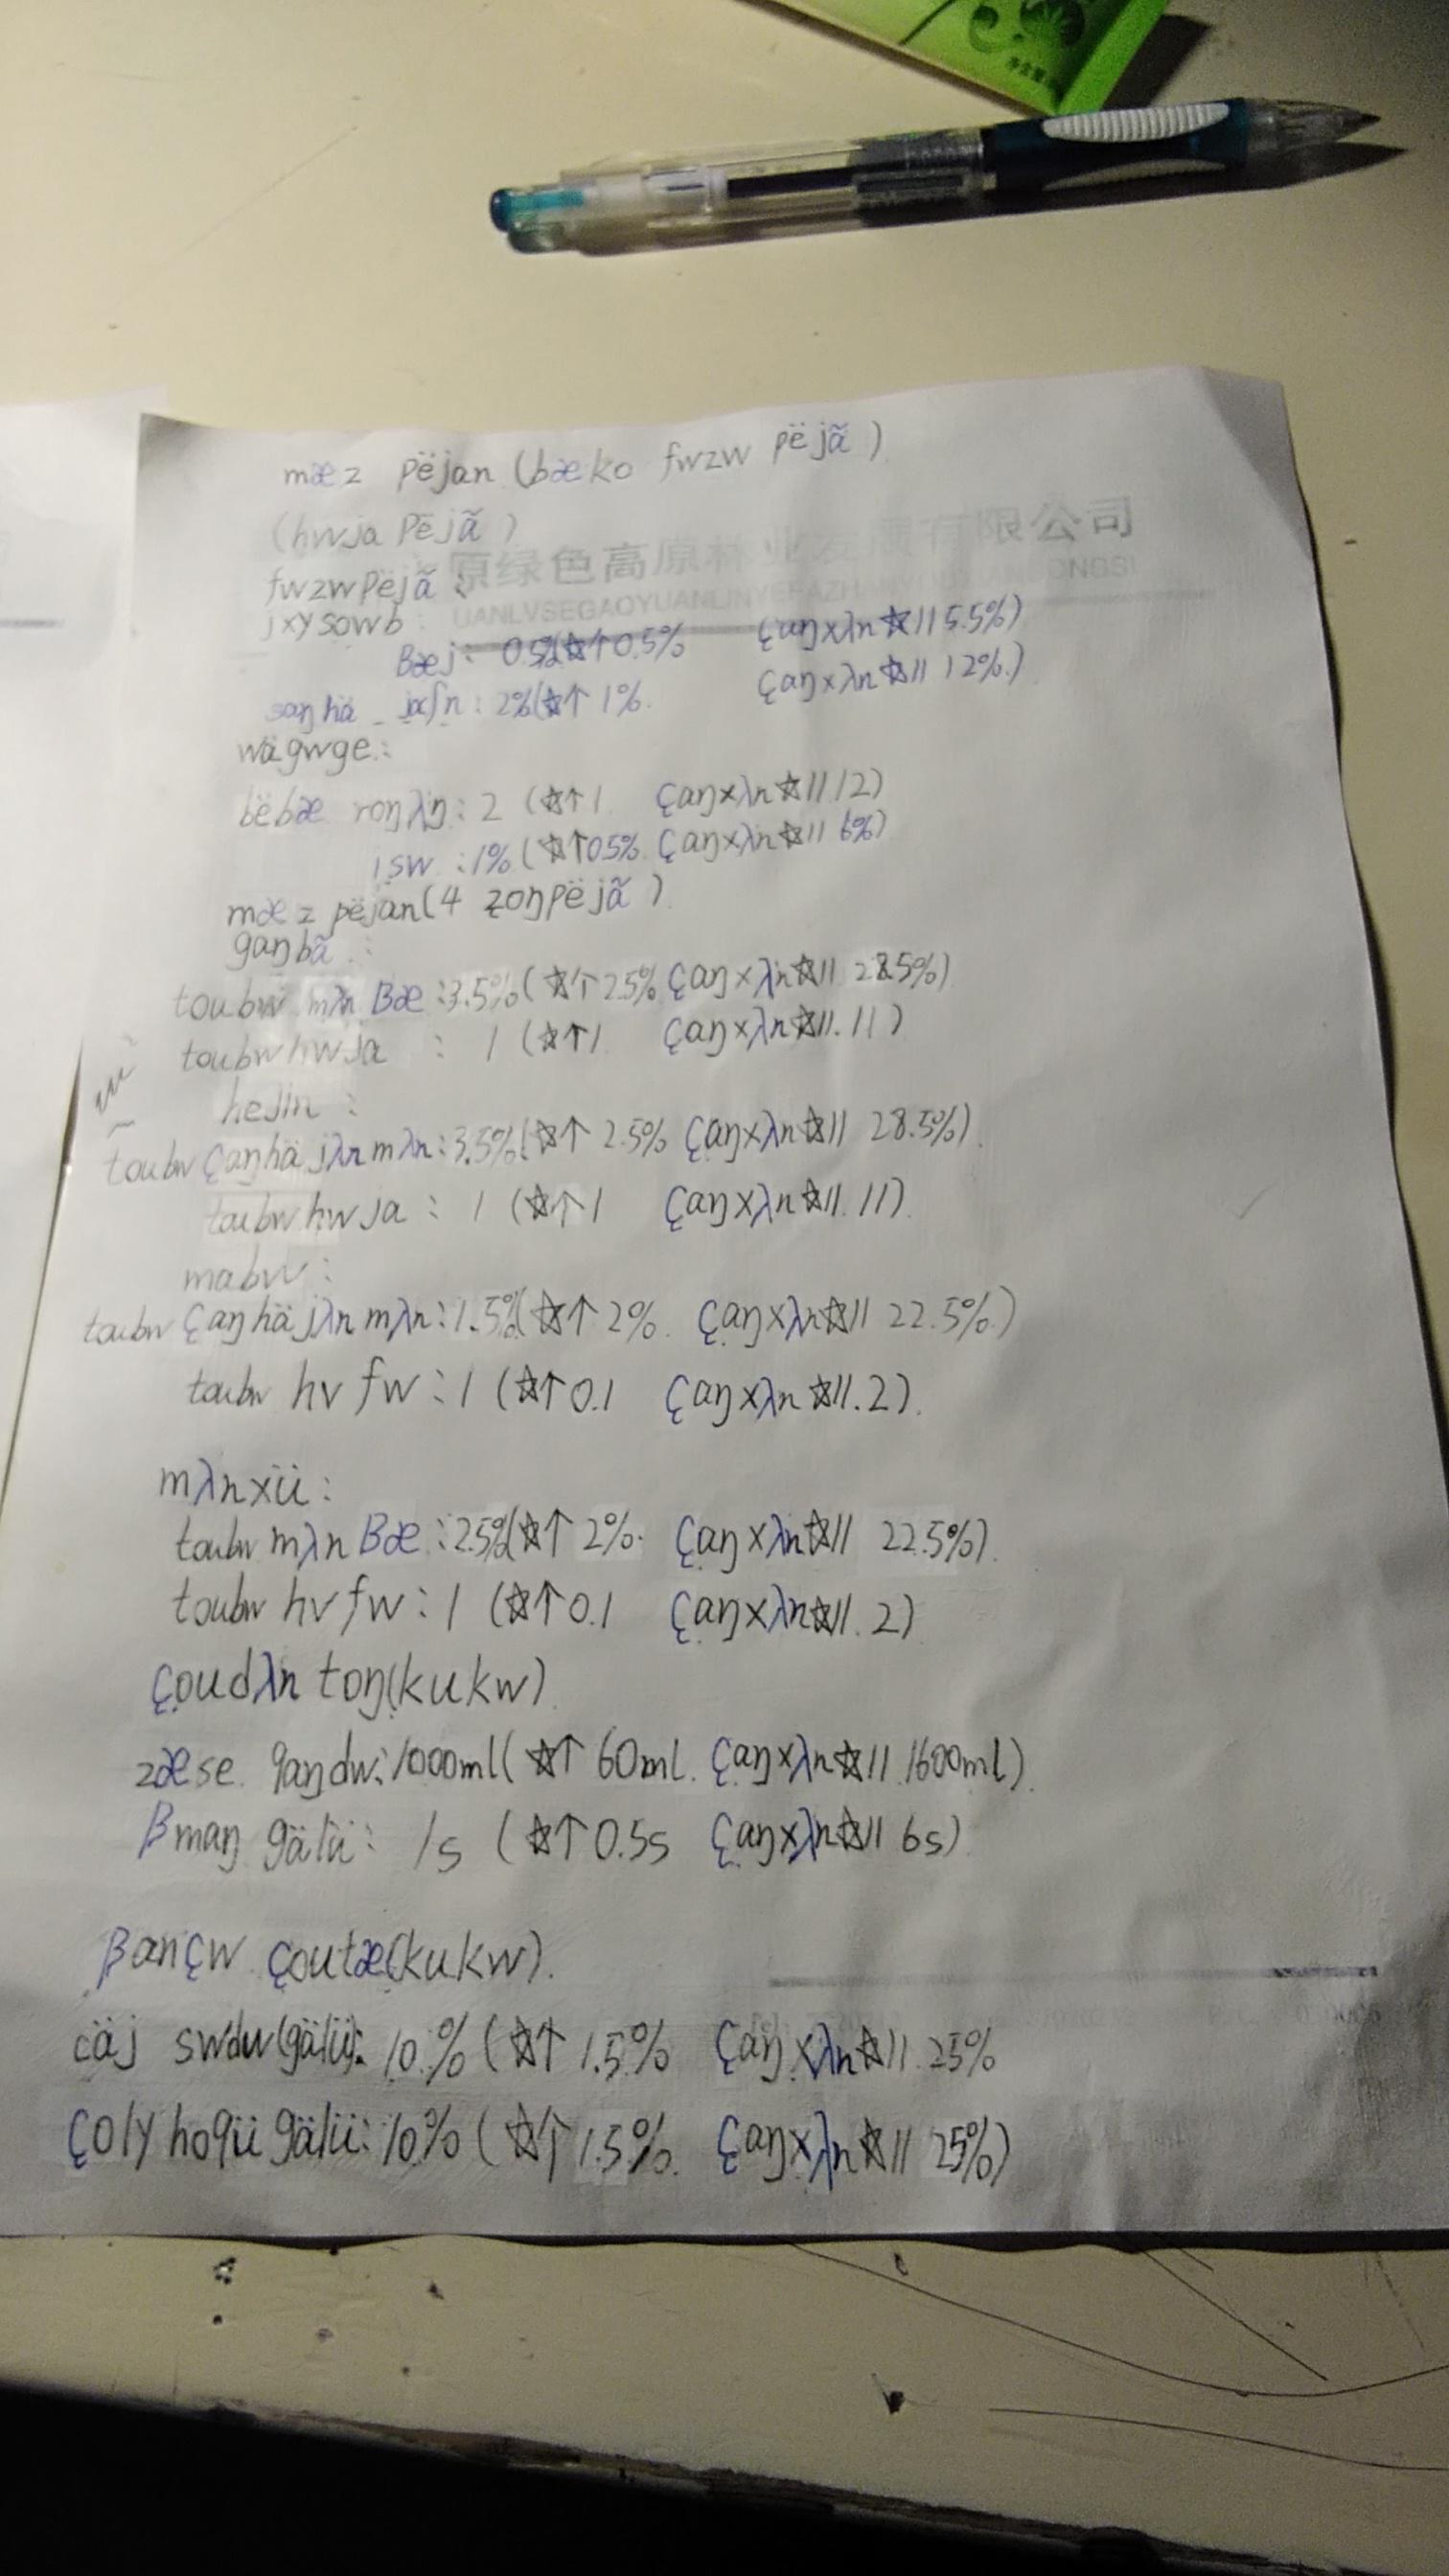 mæz pëjan (bæko fwzw pëjã)
(hwja Pëjã)
原绿色高原林业发展有限公司
fwzwpëjã:
UANLVSEGAOYUANLINYEFAZHANYOUXIANGONGSI
jxysowb:
Bæj: 0.5%(☆↑0.5% çaŋxλn☆11 5.5%)
saŋhä : 2%(☆↑ 1%. çaŋxλn☆11 12%.)
wägwge:
bëbæ roŋλŋ: 2 (☆↑1. çaŋxλn☆11 12)
isw : 1% (☆↑05%. çaŋxλn☆11 6%)
mæz pëjan(4 zoŋpëjã).
gaŋbã:
toubw mλn Bæ :3.5%(☆↑25% çaŋxλn☆11 28.5%)
toubw hwja : 1 (☆↑1 çaŋxλn☆11. 11)
hejin :
toubw çaŋhä jλn mλn: 3.5%(☆↑ 2.5% çaŋxλn☆11 28.5%).
toubw hwja : 1 (☆↑1 çaŋxλn☆11. 11).
mabw:
toubw çaŋhä jλn mλn: 1.5%(☆↑2%. çaŋxλn☆11 22.5%.)
toubw hv fw: 1 (☆↑0.1 çaŋxλn☆11. 2).
mλnxü:
toubw mλn Bæ: 2.5%(☆↑2%. çaŋxλn☆11 22.5%).
toubw hv fw: 1 (☆↑0.1 çaŋxλn☆11. 2)
çoudλn toŋ(kukw).
zæse. gaŋdw: 1000ml(☆↑ 60ml. çaŋxλn☆11. 1600ml).
βmaŋ gälü: 1s (☆↑0.5s çaŋxλn☆11 6s).
βançw çoutæ(kukw).
cäj swdw(gälü): 10.% (☆↑ 1.5% çaŋxλn☆11. 25%
çoly hoqü gälü: 10% (☆↑ 1.5%. çaŋxλn☆11 25%)